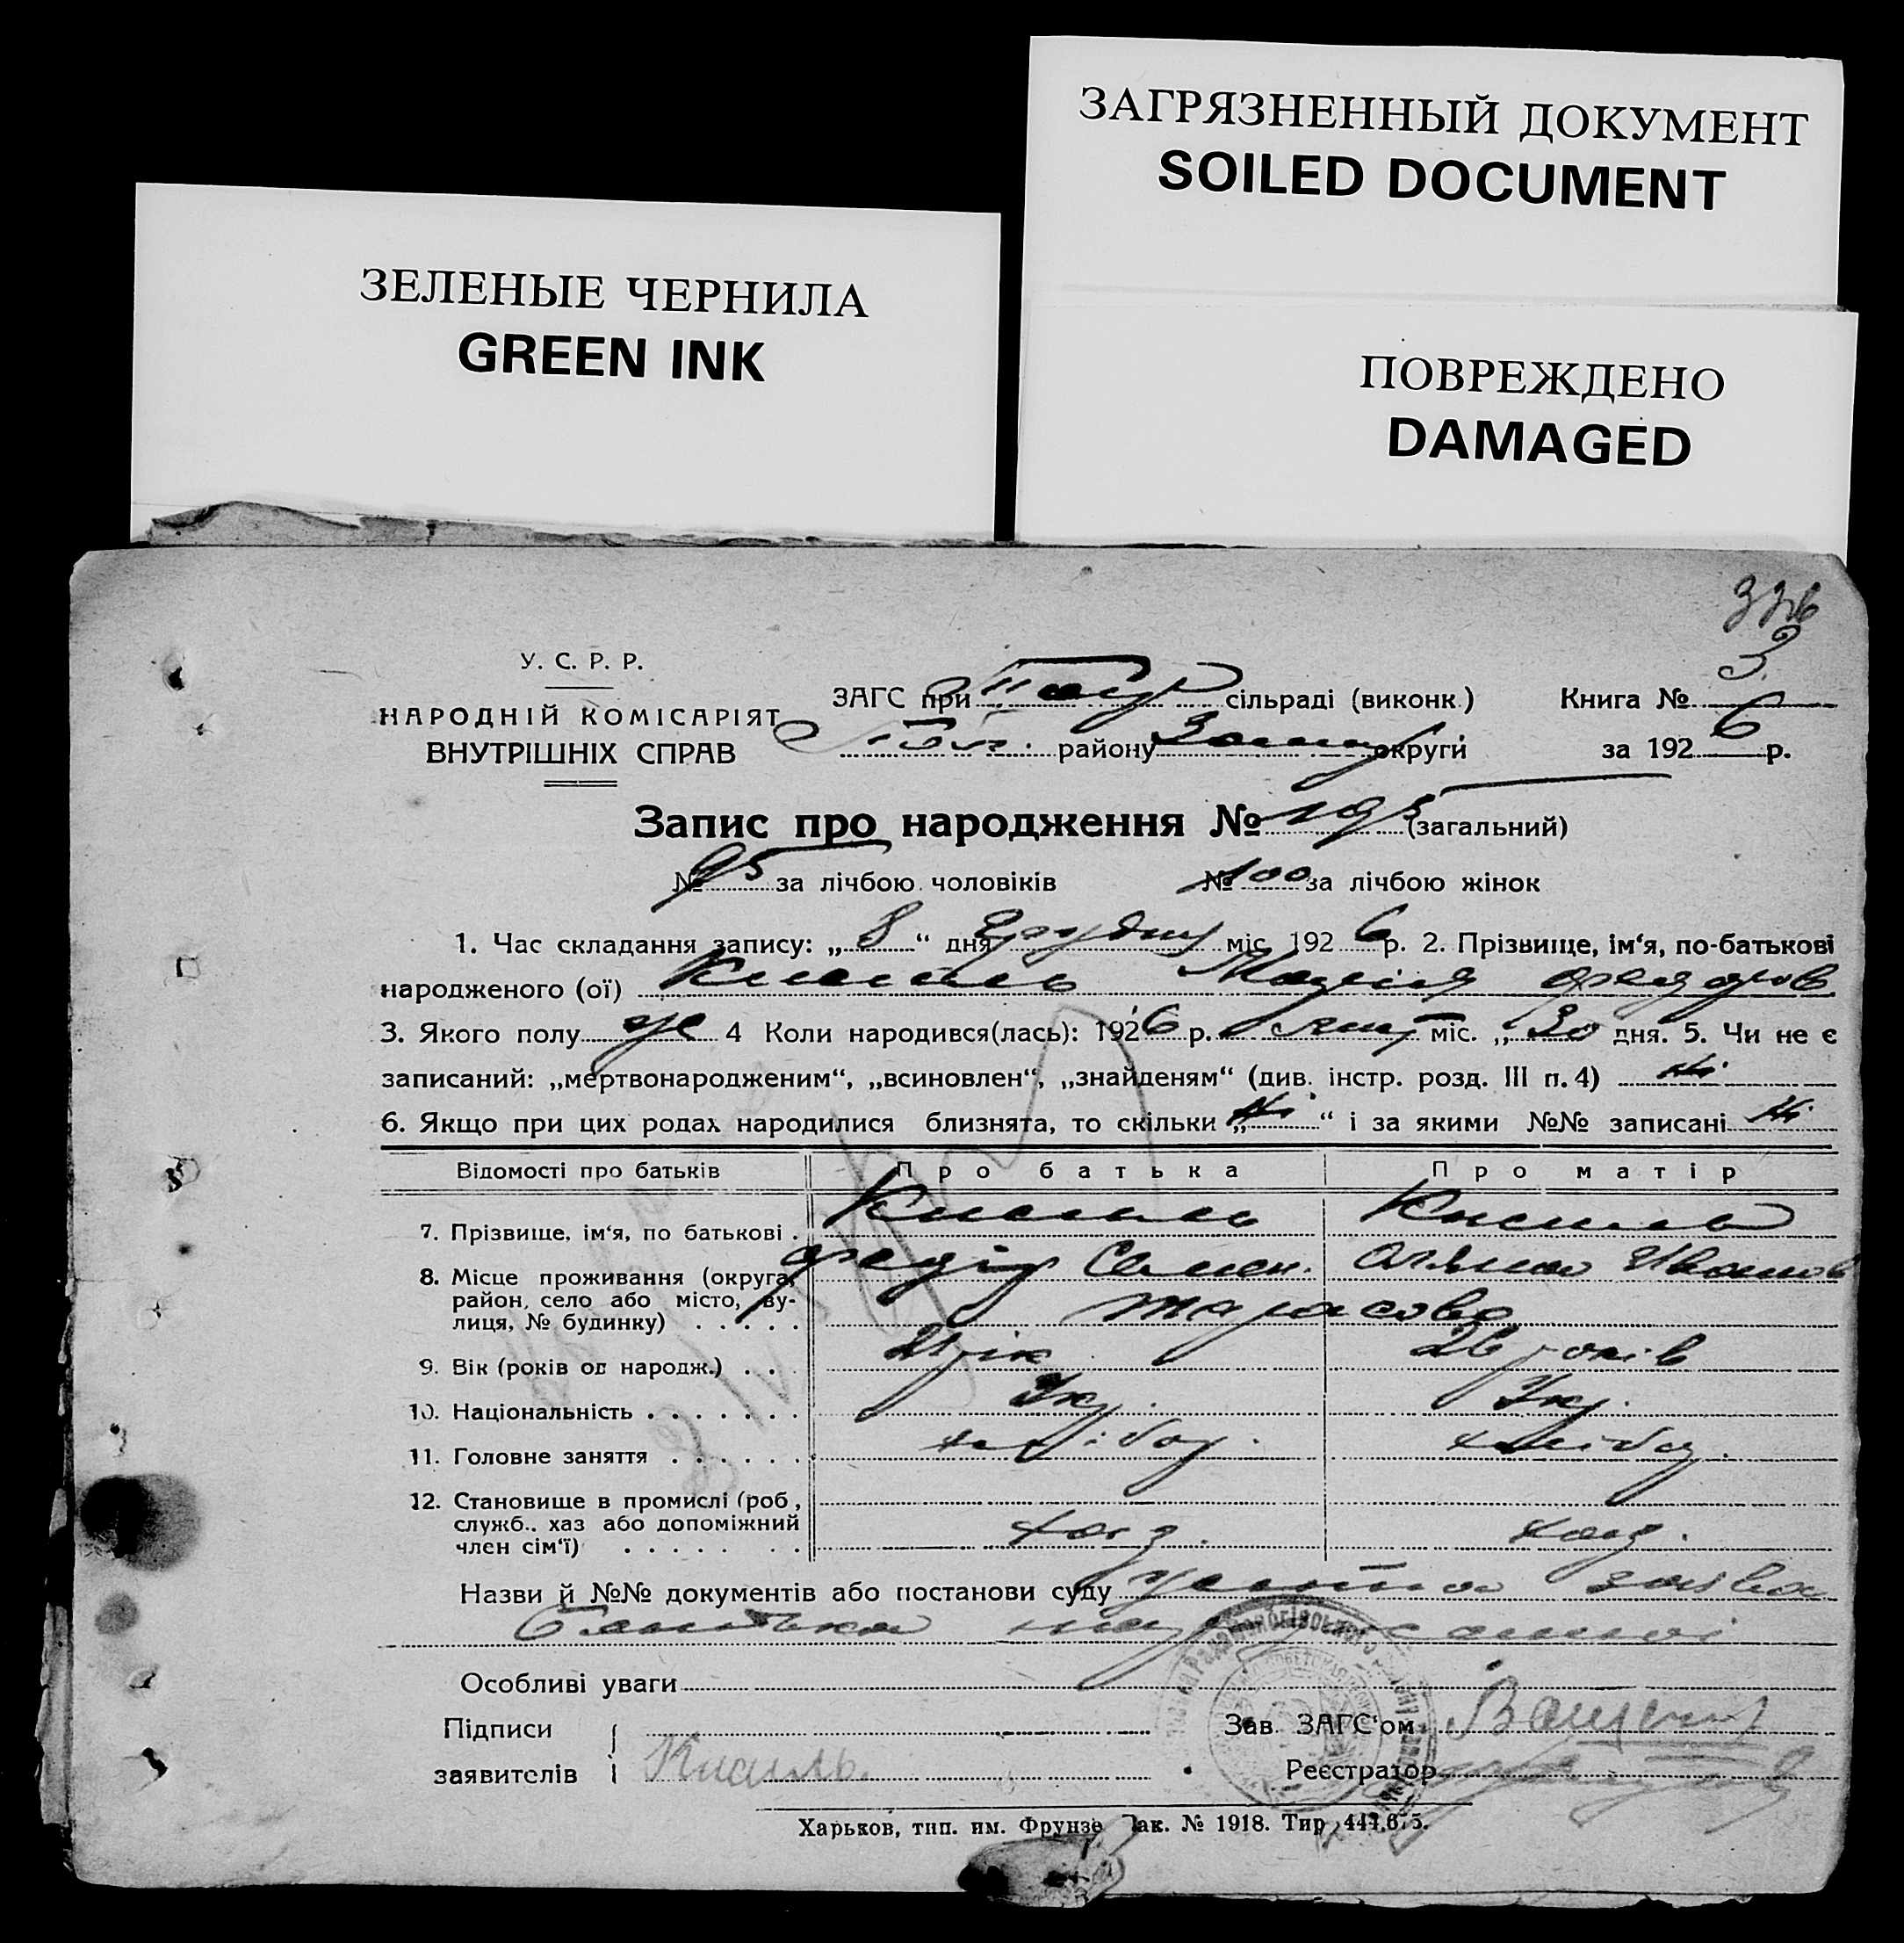 ЗАГРЯЗНЕННЫЙ ДОКУМЕНТ
SOILED DOCUMENT
ЗЕЛЕНЫЕ ЧЕРНИЛА
GREEN INK
ПОВРЕЖДЕНО
DAMAGED
3
У. С. Р. Р.
НАРОДНІЙ КОМІСАРІЯТ
ВНУТРІШНІХ СПРАВ
ЗАГС при сільраді (виконк.) Книга №
району округи за 1926 р.
Запис про народження № 195 (загальний)
№ 95 за лічбою чоловіків № 100 за лічбою жінок
1. Час складання запису: „8“ дня Грудня міс. 1926 р. 2. Прізвище, ім‘я, по-батькові
народженого (ої) Кисель Марія Федоров
3. Якого полу ж 4 Коли народився(лась): 1926 р. міс. „30 дня. 5. Чи не є
записаний: „мертвонародженим“, „всиновлен“, „знайденям“ (див. інстр. розд. III п. 4) Ні
6. Якщо при цих родах народилися близнята, то скільки „Ні“ і за якими №№ записані Ні
Відомості про батьків Про батька Про матір
7. Прізвище, ім‘я, по батькові . Кисель Кисель
Федір Семен. Иванов
8. Місце проживання (округа,
район, село або місто, ву-
лиця, № будинку) . . . . . Тарасовка
9. Вік (років од народж.) . . . 26 років
10. Національність . . . . . . . Укр. Укр.
11. Головне заняття . . . . . . хлібор. хлібор.
12. Становище в промислі (роб.,
служб., хаз або допоміжний
член сім‘ї) . . . . . . . хазя. хазя.
Назви й №№ документів або постанови суду устна заява
батька
Особливі уваги
Підписи Зав. ЗАГС‘ом
заявителів Кисель Реєстратор
Харьков, тип. им. Фрунзе Зак. № 1918. Тир. 444.675.